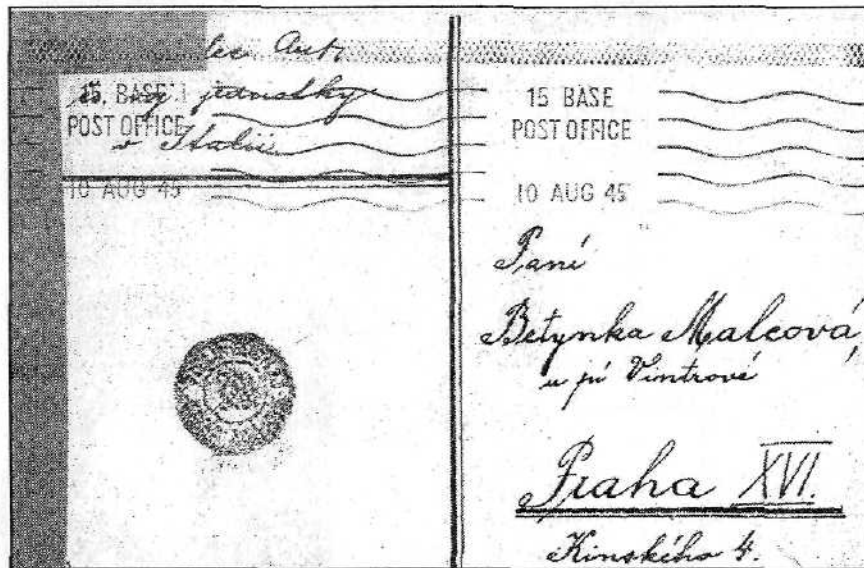 Ant.
15 BASE
jednotky
POST OFFICE
v Italii
10 AUG 45
15 BASE
POST OFFICE
10 AUG 45
Paní
Betynka Malcová,
u pí Vintrové
Praha XVI.
Kinského 4.